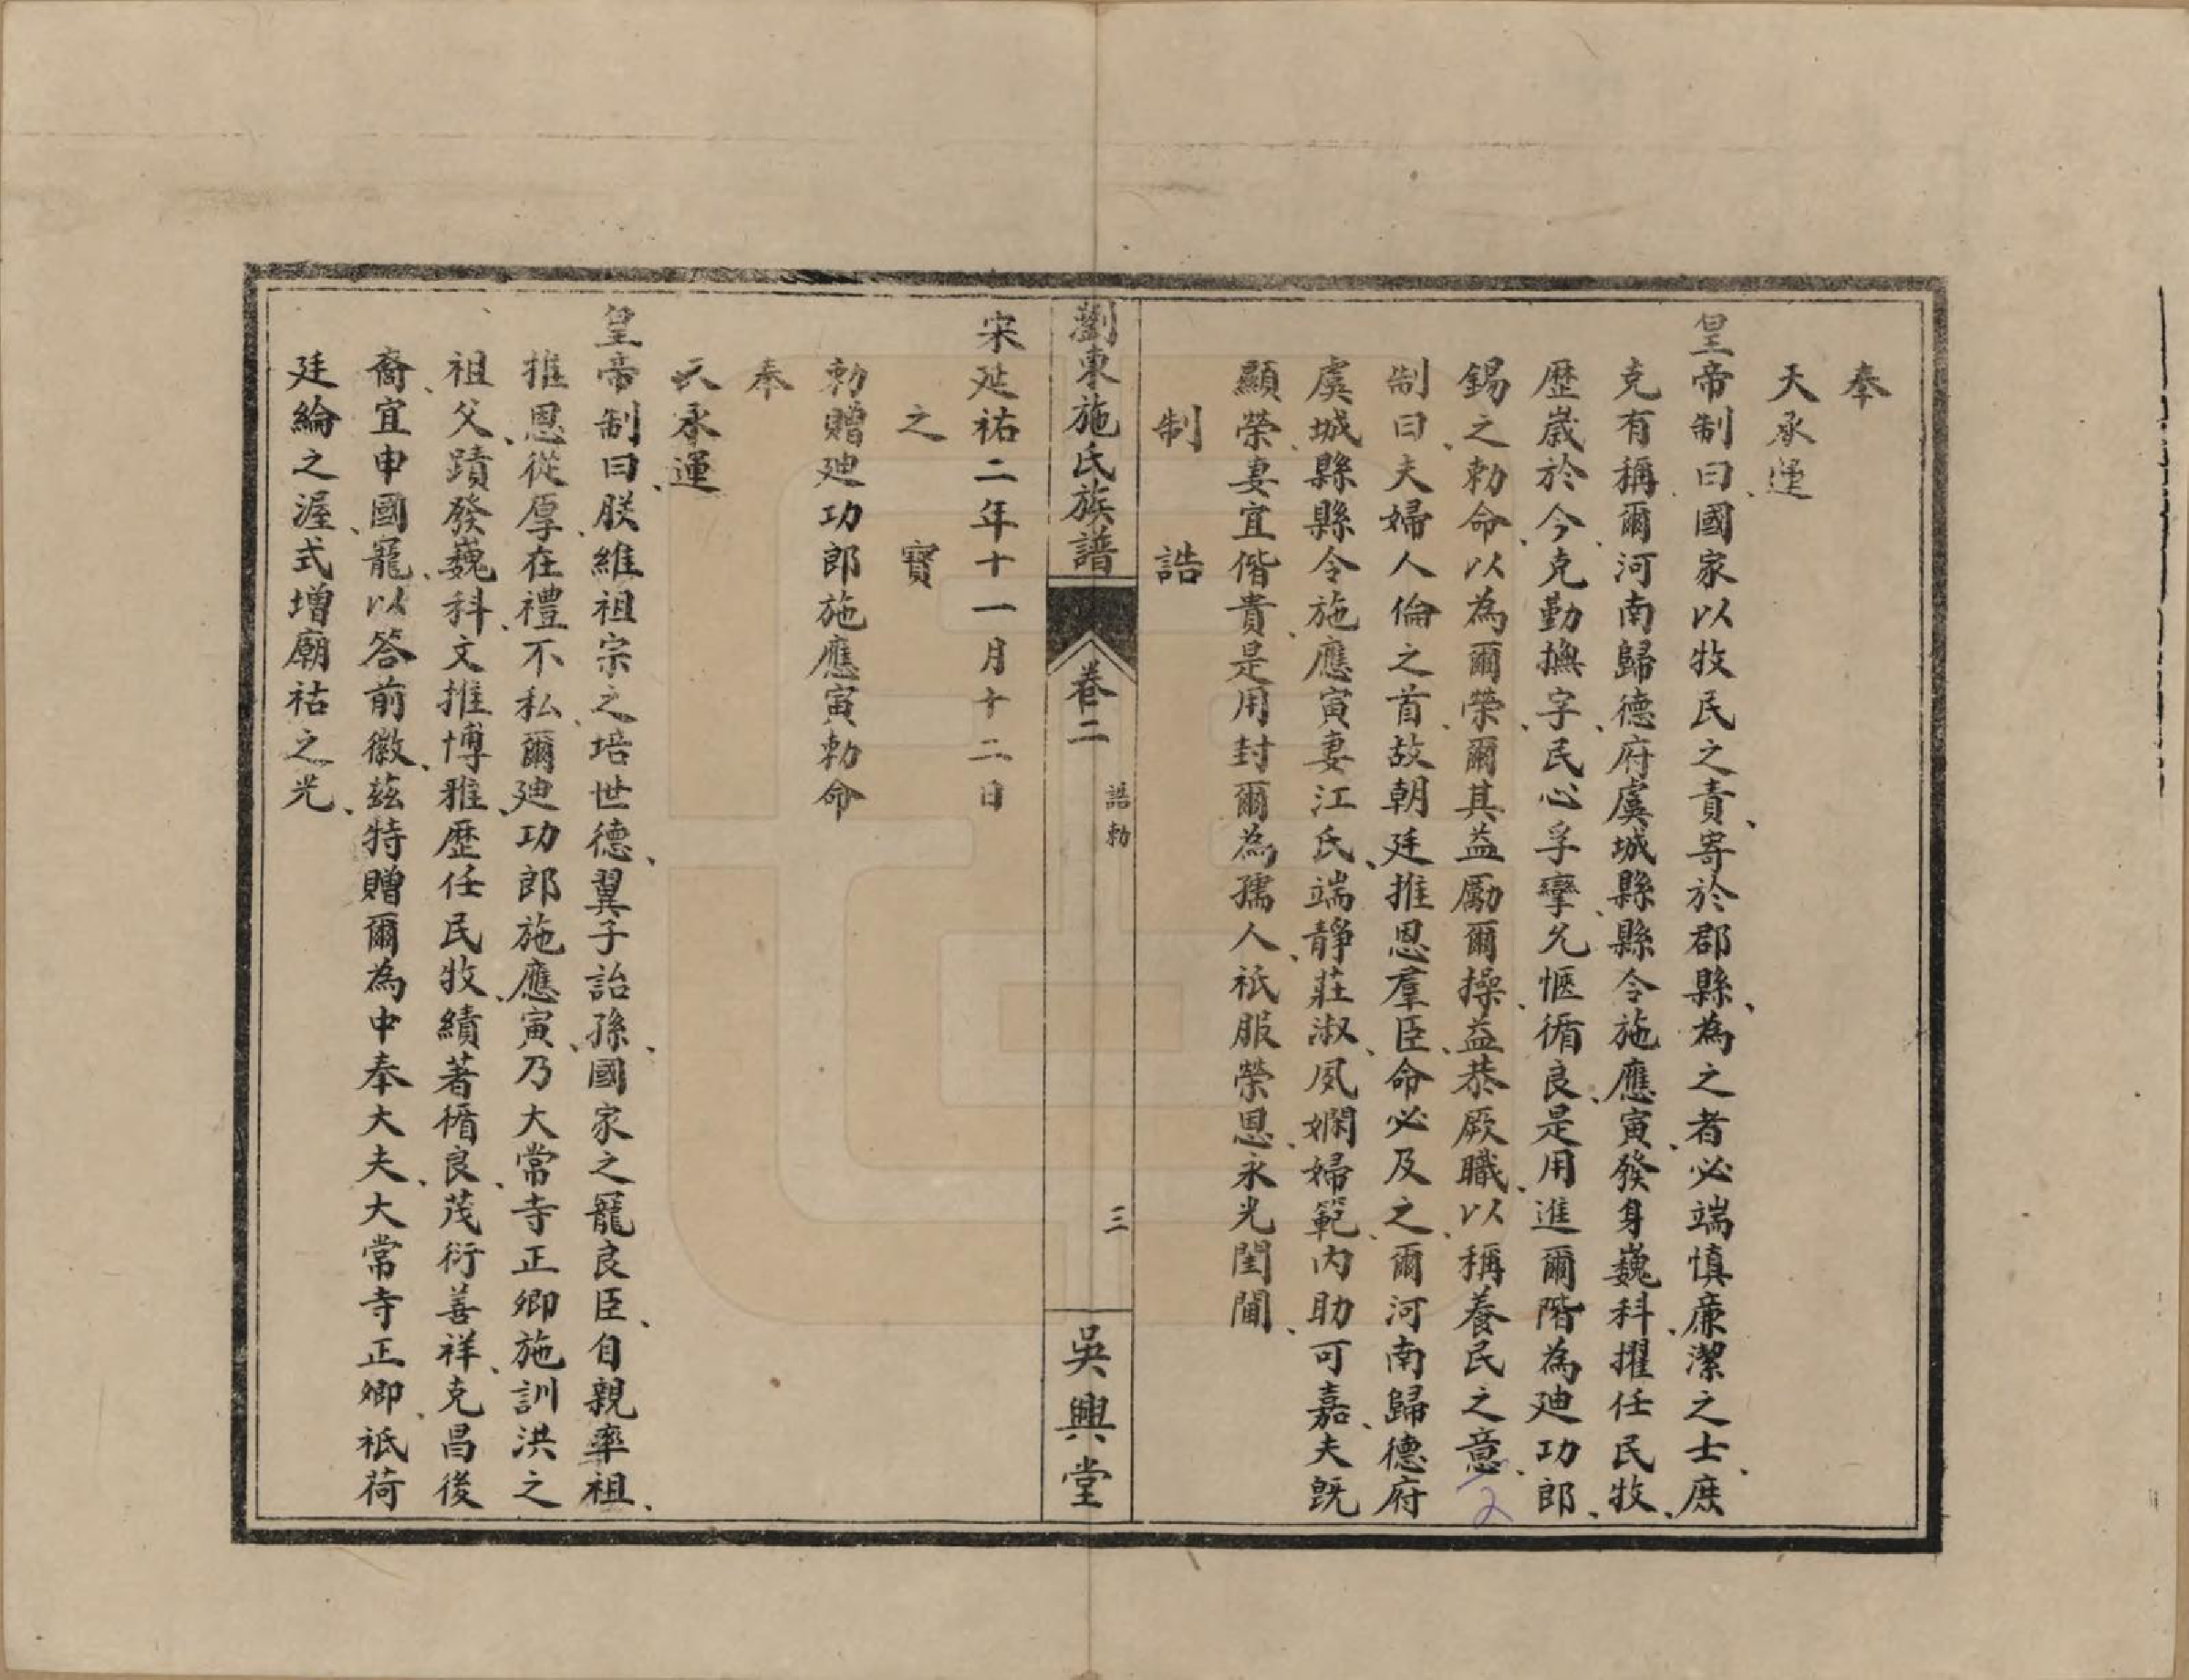 奉
天承運
皇帝制曰、國家以牧民之責、寄於郡縣、為之者必端慎廉潔之士、庶
克有稱、爾河南歸德府虞城縣縣令施應寅、發身巍科、擢任民牧、
歷歲於今、克勤撫字、民心孚孿、允愜循良、是用進爾階為廸功郎、
錫之勅命、以為爾榮、爾其益勵爾操、益恭厥職、以稱養民之意、
制曰、夫婦人倫之首、故朝廷推恩羣臣、命必及之、爾河南歸德府
虞城縣縣令施應寅妻江氏、端靜莊淑、夙嫻婦範、內助可嘉、夫既
顯榮、妻宜偕貴、是用封爾為孺人、祇服榮恩、永光閨閫、
制誥
劉東施氏族譜
卷二
誥勅
三
吳興堂
宋延祐二年十一月十二日
之寶
勅贈廸功郎施應寅勅命
奉
天承運
皇帝制曰、朕維祖宗之培世德、翼子詒孫、國家之寵良臣、自親率祖、
推恩從厚、在禮不私、爾廸功郎施應寅、乃大常寺正卿施訓洪之
祖父、蹟發巍科、文推博雅、歷任民牧、績著循良、茂衍善祥、克昌後
裔、宜申國寵、以答前徽、茲特贈爾為中奉大夫、大常寺正卿、祇荷
廷綸之渥、式增廟祜之光、